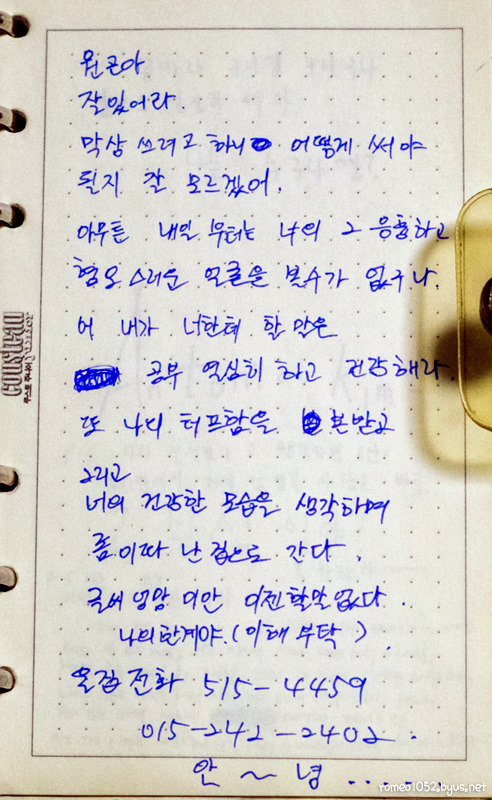 원근아
잘있어라
막상 쓰려고 하니 어떻게 써야
될지 잘 모르겠어.
아무튼 내일 부터는 너의 그 음흉하고
혐오스러운 얼굴을 볼수가 없구나.
어 내가 너한테 할 말은
공부 열심히 하고 건강해라.
또 나의 터프함을 본받고
그리고
너의 건강한 모습을 생각하며
좀이따 난 집으로 간다.
이만 이젠할말없다.
나의한계야.(이해 부탁)
전화 515-4459
015-242-2402.
안~녕.....
romeo1052.byus.net